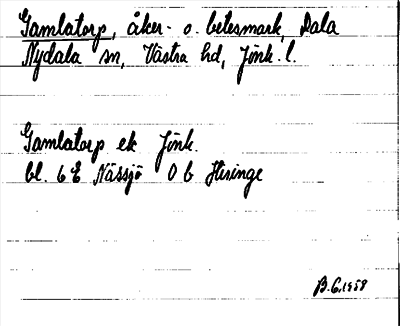 Gamlatorp, åker- o. betesmark, Dala
Nydala sn, Västra hd, Jönk. l.
Gamlatorp ek Jönk.
bl. 6 E Nässjö 0 b Hisinge
B.G.1958